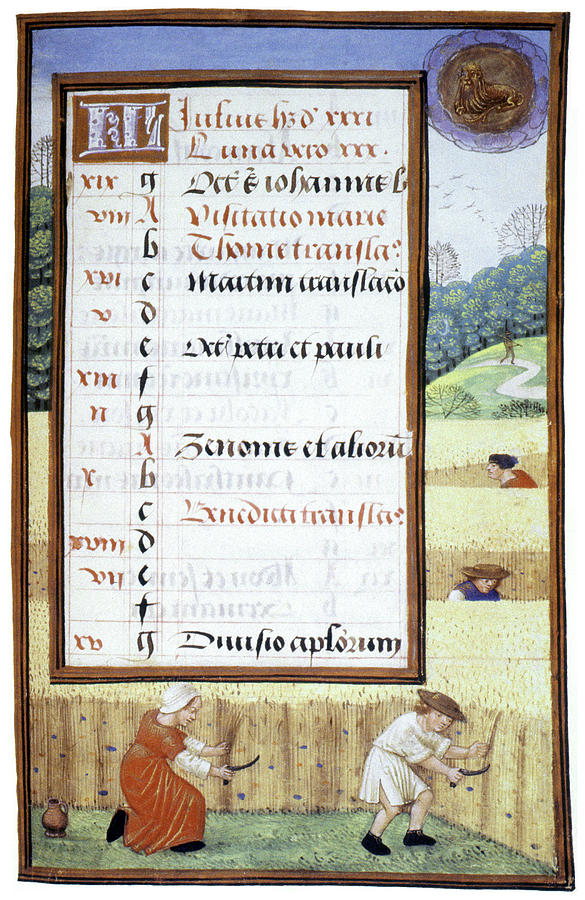 KL Julius hz d' xxxi
Luna vero xxx.
xix g Oct' s' iohannis b
viii A Visitatio marie
b Thome transla?
xvi c Martini translaco
v d
e Oct' petri et pauli
xiii f
ii g
A Zenonis et alioru
x b
c Benedicti transla?
xviii d
vii e
f
xv g Divisio aplorum